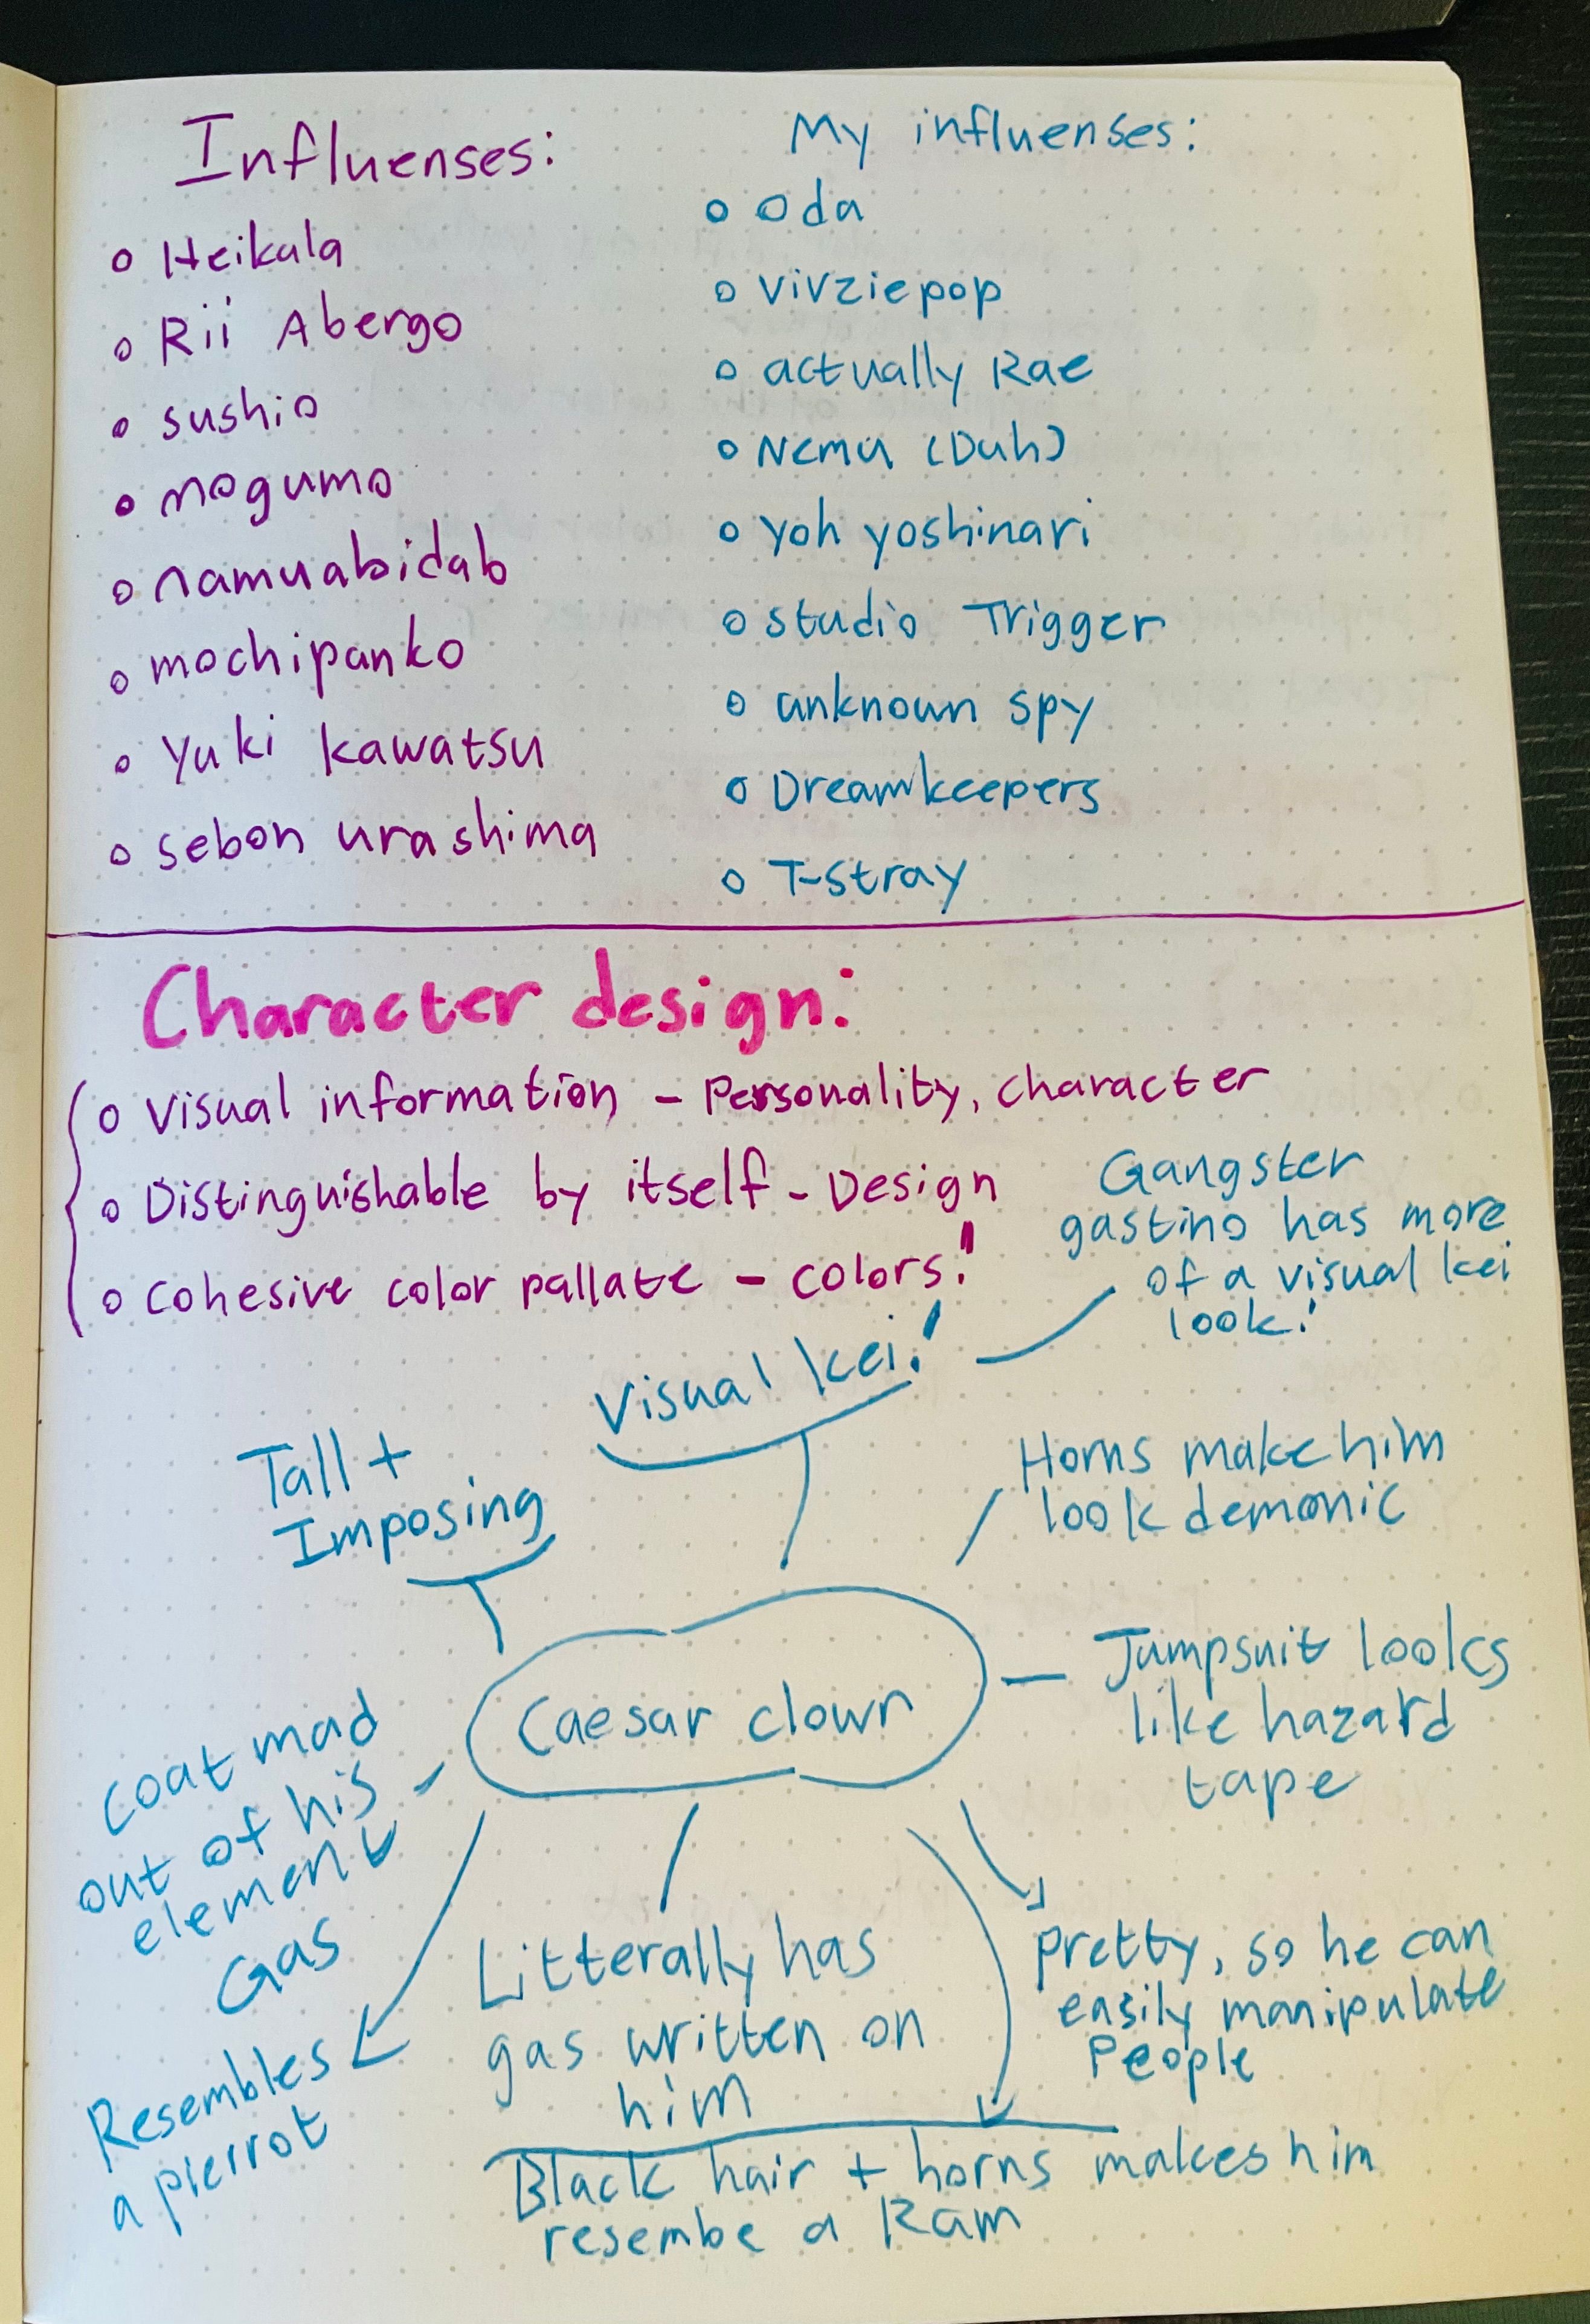 Influenses:
o Heikala
o Rii Abergo
o sushio
o mogumo
o namuabidab
o mochipanko
o Yuki kawatsu
o sebon urashima
My influenses:
o Oda
o vivziepop
o actually Rae
o Nemu (Duh)
o yoh yoshinari
o studio Trigger
o unknown spy
o Dreamkeepers
o T-stray
Character design:
o Visual information - Personality, character
o Distinguishable by itself - Design
o Cohesive color pallate - colors!
Gangster
gastino has more
of a visual kei
look!
Visual kei!
Tall +
Imposing
Horns make him
look demonic
Caesar clown
Jumpsuit looks
like hazard
tape
Coat mad
out of his
element
Gas
Resembles
a pierrot
Litterally has
gas written on
him
pretty, so he can
easily manipulate
People
Black hair + horns makes him
resembe a Ram